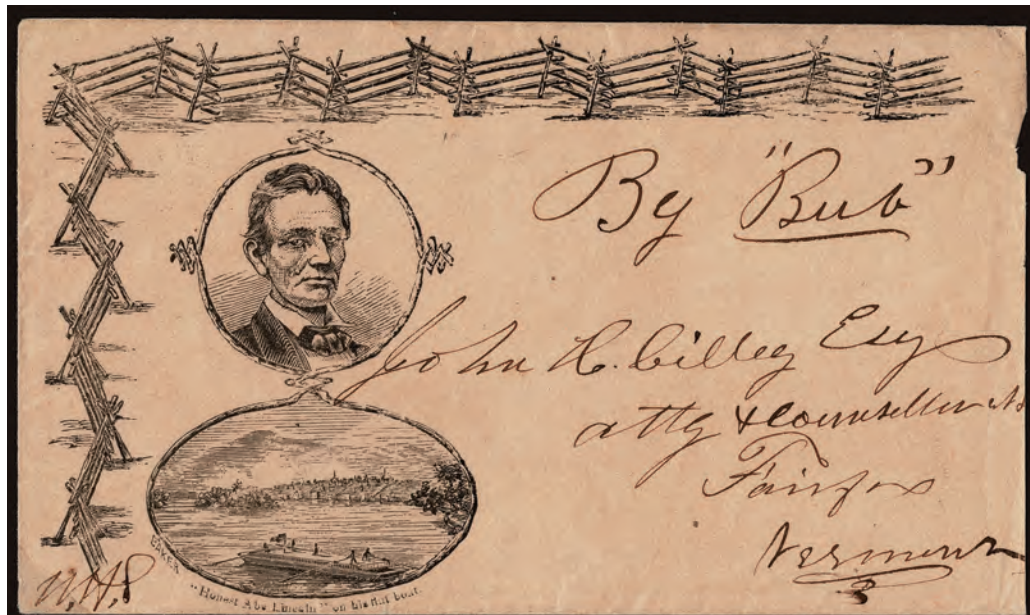 By "Bub"
John H. Cilley Esq
atty & Counsellor
Fairfax
Vermont
BAKER
"Honest Abe Lincoln" on his flat boat.